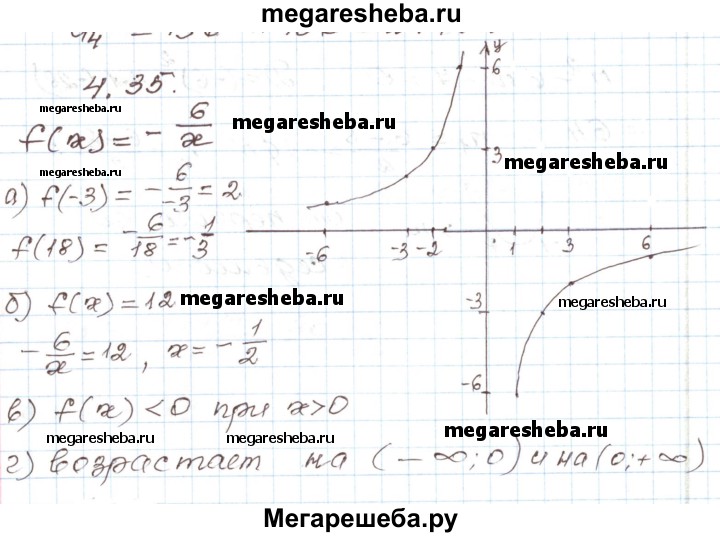 megaresheba.ru
4.35.
megaresheba.ru
f(x) = - 6/x
megaresheba.ru
megaresheba.ru
megaresheba.ru
а) f(-3) = - 6/-3 = 2
f(18) = - 6/18 = - 1/3
б) f(x) = 12
megaresheba.ru
megaresheba.ru
- 6/x = 12, x = - 1/2
в) f(x) < 0 при x>0
megaresheba.ru
megaresheba.ru
megaresheba.ru
г) возрастает на (-∞;0) и на (0;+∞)
y
6
3
-6 -3 -2 1 3 6
-3
-6
Мегарешеба.ру